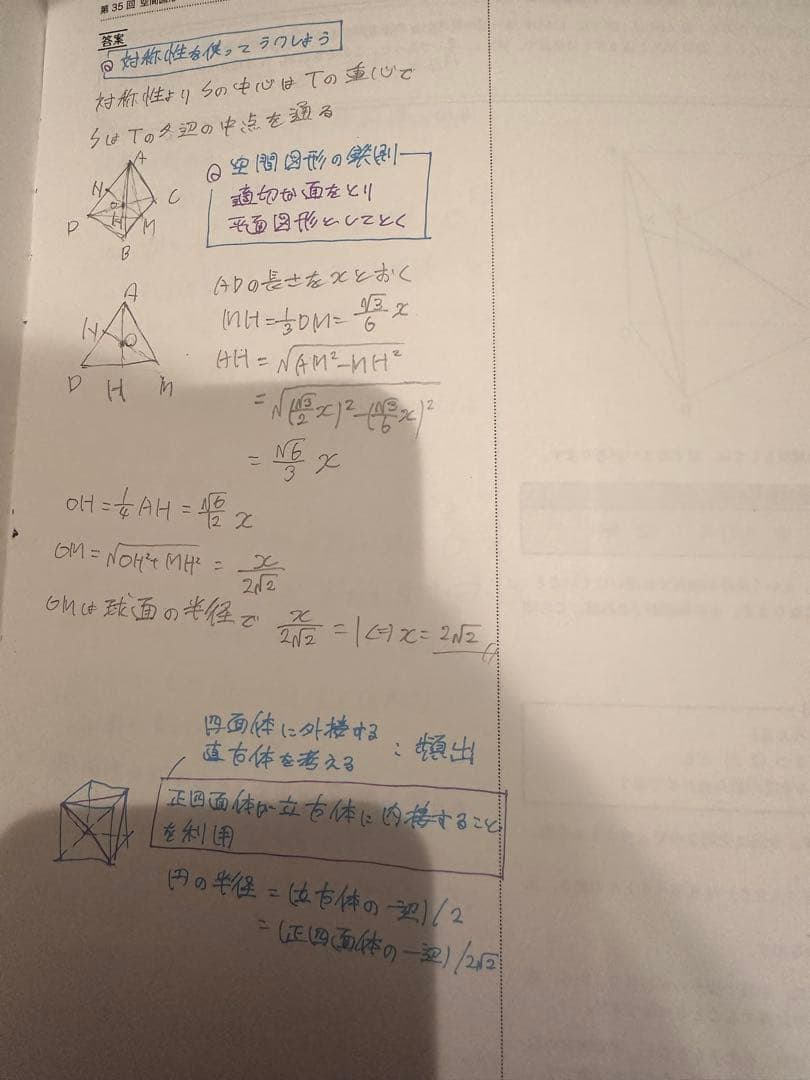 第35回 空間図形
答案
対称性を使ってラクしよう
対称性よりSの中心はTの重心で
SはTの各辺の中点を通る
A
N
O
C
D
H
M
B
空間図形の鉄則
適切な面をとり
平面図形としてとく
A
N
O
D
H
M
ADの長さをxとおく
MH=1/3DM=√3/6 x
AH=√(AM²-MH²)
=√((√3/2 x)²-(√3/6 x)²)
=√6/3 x
OH=1/4AH=√6/12 x
OM=√(OH²+MH²)=x/2√2
OMは球面の半径で x/2√2=1⇔x=2√2
四面体に外接する
直方体を考える
:頻出
正四面体が立方体に内接すること
を利用
円の半径=(立方体の一辺)/2
=(正四面体の一辺)/2√2